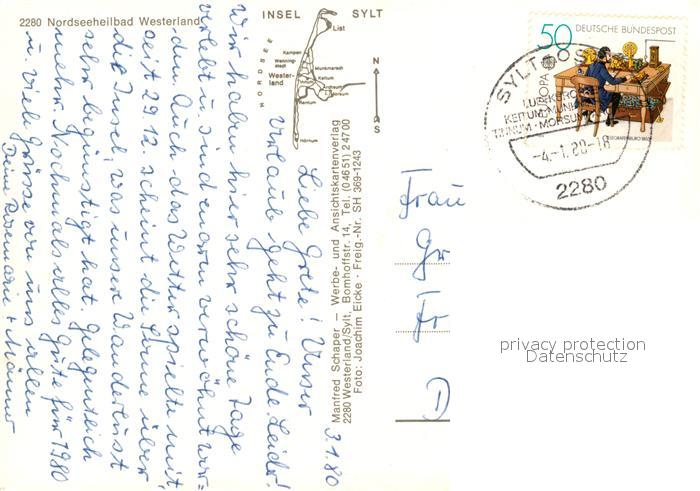 2280 Nordseeheilbad Westerland
INSEL SYLT
NORDSEE
List
Kampen
Wenningstedt
Westerland
Munkmarsch
Keitum
Archsum
Morsum
Rantum
Hörnum
N
S
3.1.80
Liebe Grete! Unser
Urlaub geht zu Ende. Leider!
Wir haben hier sehr schöne Tage
verlebt u. sind enorm verwöhnt wor-
den. Auch das Wetter spielte mit,
seit 29.12. scheint die Sonne über
die Insel, was unsere Wanderlust
sehr begünstigt hat. Gelegentlich
mehr. Nochmals alles Gute für 1980
u. viele Grüsse von uns allen
Deine Rosemarie + Männer
Manfred Schaper – Werbe- und Ansichtskartenverlag
2280 Westerland/Sylt, Bomhoffstr. 14, Tel. (0 46 51) 2 47 00
Foto: Joachim Eicke · Freig.-Nr. SH 369-1243
50 DEUTSCHE BUNDESPOST
EUROPA
SYLT-OST
KEITUM-MUNK
TINNUM-MORSUM
-4.-1.80-18
2280
Frau
Gr
Fr
D
privacy protection
Datenschutz